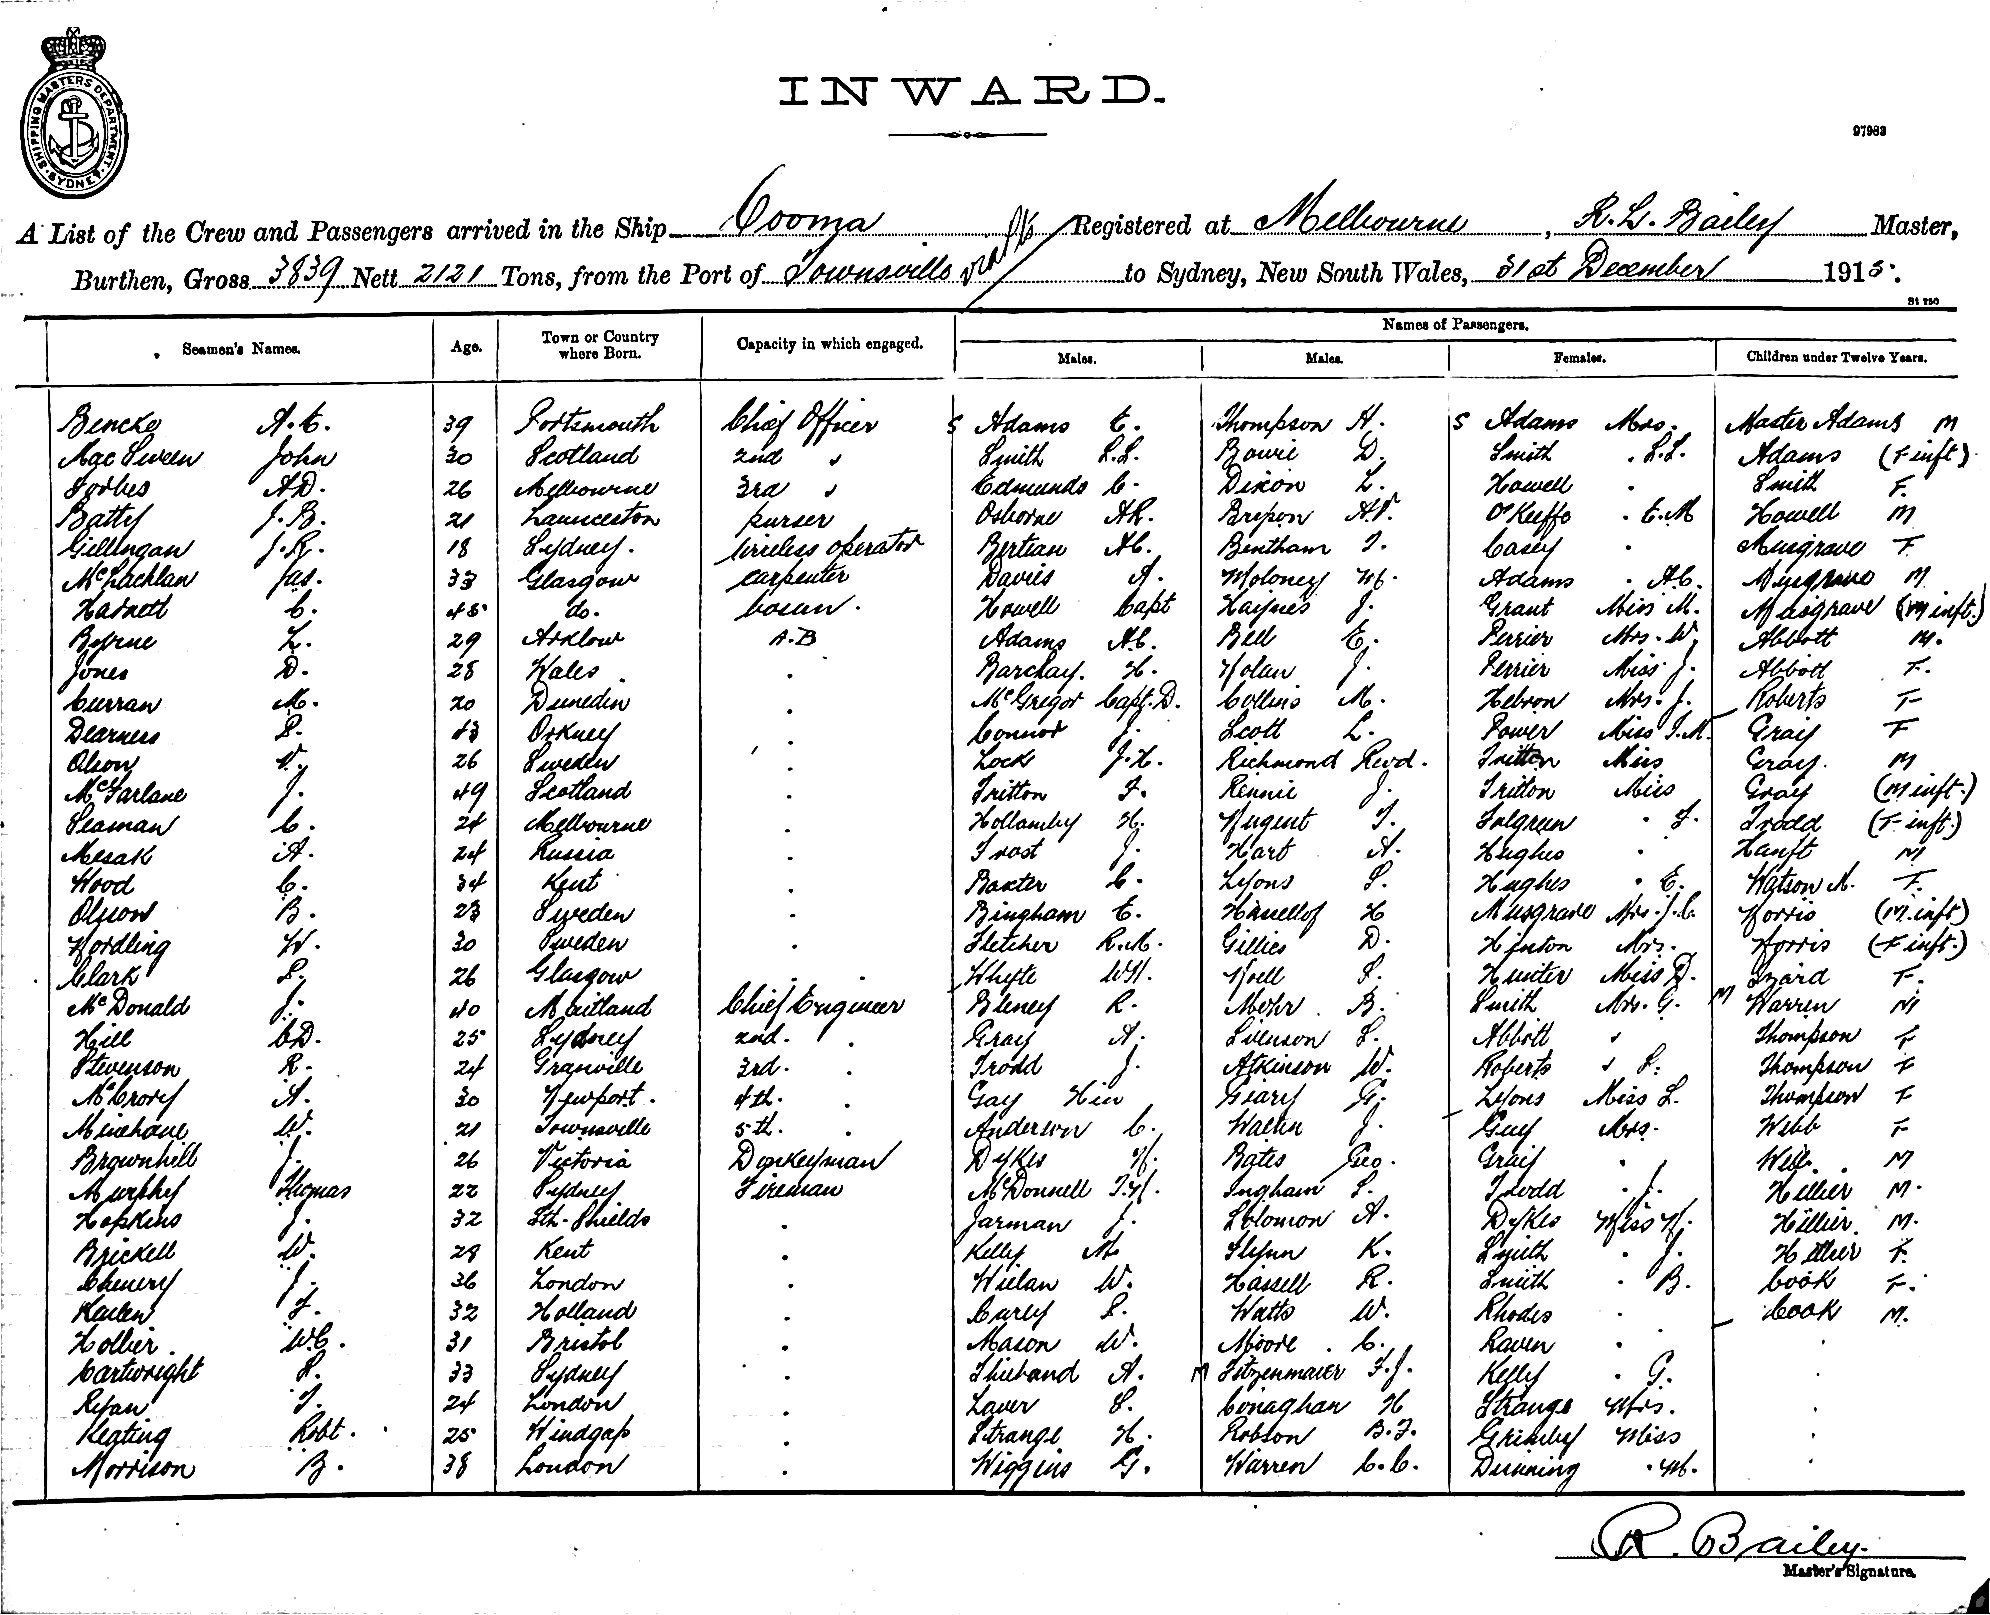 SHIPPING MASTERS DEPARTMENT. SYDNEY
INWARD.
97983
A List of the Crew and Passengers arrived in the Ship Cooma Registered at Melbourne, R. L. Bailey Master,
Burthen, Gross 3839 Nett 2121 Tons, from the Port of Townsville via to Sydney, New South Wales, 31st December 1915.
Names of Passengers.
Seamen's Names. Age. Town or Country where Born. Capacity in which engaged. Males. Males. Females. Children under Twelve Years.
Bencke A. C. 39 Portsmouth Chief Officer S Adams E. Thompson H. S Adams Mrs. Master Adams M
MacSween John 30 Scotland 2nd " Smith L.L. Bowie D. Smith . L.L. Adams (F inft).
Forbes A D. 26 Melbourne 3rd " Edmunds C. Dixon L. Howell . Smith F.
Batty J. B. 21 Launceston purser Osborne AR. O'Keeffe . E.M Howell M
Gilligan J. R. 18 Sydney. wireless operator AC. Bentham T. Casey . Musgrave F.
McLachlan Jas. 33 Glasgow carpenter Davies A. Moloney M. Adams . A.C. Musgrave M.
Harnett C. 45 do. bosun. Howell Capt Haynes J. Grant Miss M. Musgrave (M inft.)
Byrne L. 29 Arklow A.B Adams AC. Bell E. Perrier Mrs. W Abbott M.
Jones D. 28 Wales . Barchay. H. Nolan J. Perrier Miss J. Abbott F.
Curran M. 20 Dunedin . McGregor Capt. D. Collins M. Hebron Mrs. J. Roberts F
Dearness P. 43 Orkney . Connor J. Scott L. Power Miss I.M. Gray F
Olson V. 26 Sweden . Lock J.H. Richmond Revd. Tritton Miss Gray. M
McFarlane J. 49 Scotland . Tritton F. Rennie J. Tritton Miss Gray (M inft.)
Seaman C. 24 Melbourne . Hollamby H. Nugent T. . F. Trodd (F inft.)
Mesak A. 24 Russia . Frost J. Hart A. Hughes . Hanft M
Wood C. 34 Kent . Baxter C. Lyons P. Hughes . E. Watson M. F.
Olsson B. 23 Sweden . Bingham E. Hassellof H Musgrave Mrs. J.C. Norris (M. inft)
Nordling W. 30 Sweden . Fletcher R.M. Gillies D. Hinton Mrs. Norris (F inft.)
Clark P. 26 Glasgow . . Whyte WH. Noell P. Hunter Miss D. Izard F.
McDonald J. 40 Maitland Chief Engineer Bleney R. Mohr B. Smith Mrs. G. M Warren M
Hill CD. 25 Sydney 2nd. . Gray A. Svenson S. Abbott " Thompson F
Stevenson R. 24 Granville 3rd. . Trodd J. Atkinson W. Roberts " S. Thompson F
McCrory A. 30 Newport. 4th. . Gay Hin Geary G. Lyons Miss L. Thompson F
Minehane W. 21 Townsville 5th. . Anderson C. J. Guy Mrs. Webb F
Brownhill J. 26 Victoria Donkeyman Dykes N. Bates Geo. Gray . Webb . M
Murphy Thomas 22 Sydney Fireman McDonnell T.H. Ingham S. Trodd . J. Hillier M.
Hopkins J. 32 Sth. Shields . Jarman J. Solomon A. Dykes Miss N. Hillier. M.
Brickell W. 29 Kent . Kelly M. Flynn K. Smith . J. Hillier F.
Chenery J. 36 London . Wielan W. Hassell R. Smith . B. Cook F.
F. 32 Holland . Curly P. Watts W. Rhodes . Cook M.
Hollier. W.C. 31 Bristol . Mason W. Moore . C. Raven .
Cartwright S. 33 Sydney . Thieband A. M Fitzenmaier F.J. Kelly . G.
Ryan T. 24 London . Laver S. Conaghan H Strange Mrs.
Keating Robt. 25 Windgap . Strange H. Robson B.F. Grimley Miss
Morrison B. 38 London . Wiggins G. Warren C.C. Dunning . M.
R. Bailey.
Master's Signature.